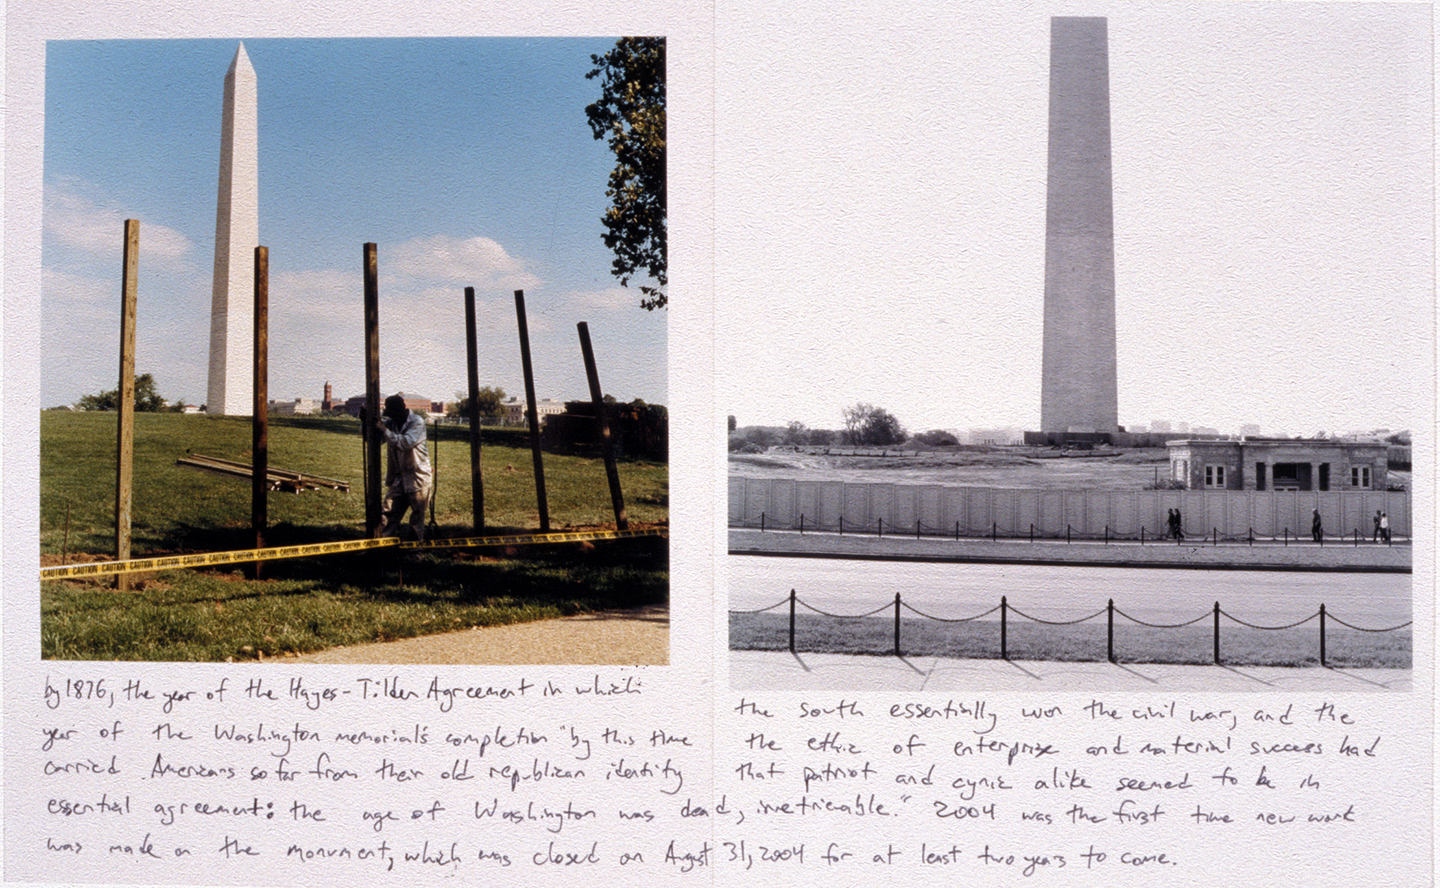 CAUTION CAUTION CAUTION CAUTION CAUTION CAUTION CAUTION CAUTION CAUTION CAUTION CAUTION CAUTION CAUTION CAUTION
by 1876, the year of the Hayes-Tilden Agreement in which the south essentially won the civil war, and the
year of the Washington memorial's completion "by this time the ethic of enterprise and material success had
carried Americans so far from their old republican identity that patriot and cynic alike seemed to be in
essential agreement: the age of Washington was dead, irretrievable." 2004 was the first time new work
was made on the monument, which was closed on August 31, 2004 for at least two years to come.